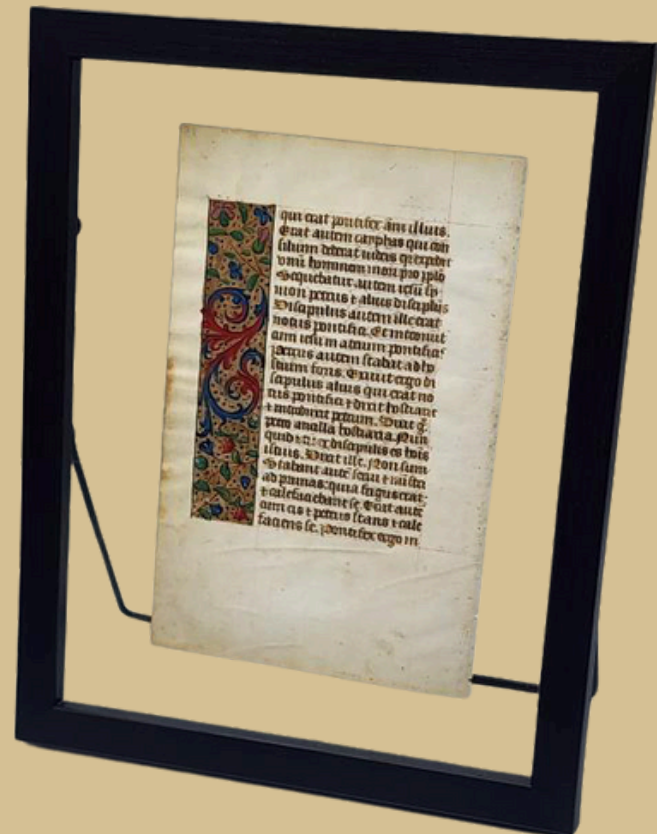 qui erat pontifex ãni illius.
Erat autem cayphas qui con
silium dederat iudeis qr expedit
vnũ hominem mori pro pplo
Sequebatur autem iesũ sy
mon petrus ⁊ alius discipls
Discipulus autem ille erat
notus pontifici. Et introiuit
cum iesu in atrium pontificis
petrus autem stabat ad ho
stium foris. Exiuit ergo di
scipulus alius qui erat no
tus pontifici ⁊ dixit hostiarie
⁊ introduxit petrum. Dixit g̃
petro ancilla hostiaria. Nun
quid ⁊ tu ex discipulis es hõis
istius. Dixit ille. Non sum
Stabant autẽ serui ⁊ mĩstri
ad prunas: quia frigus erat:
⁊ calefaciebant se. Erat autẽ
cum eis ⁊ petrus stans ⁊ cale
faciens se. Pontifex ergo in